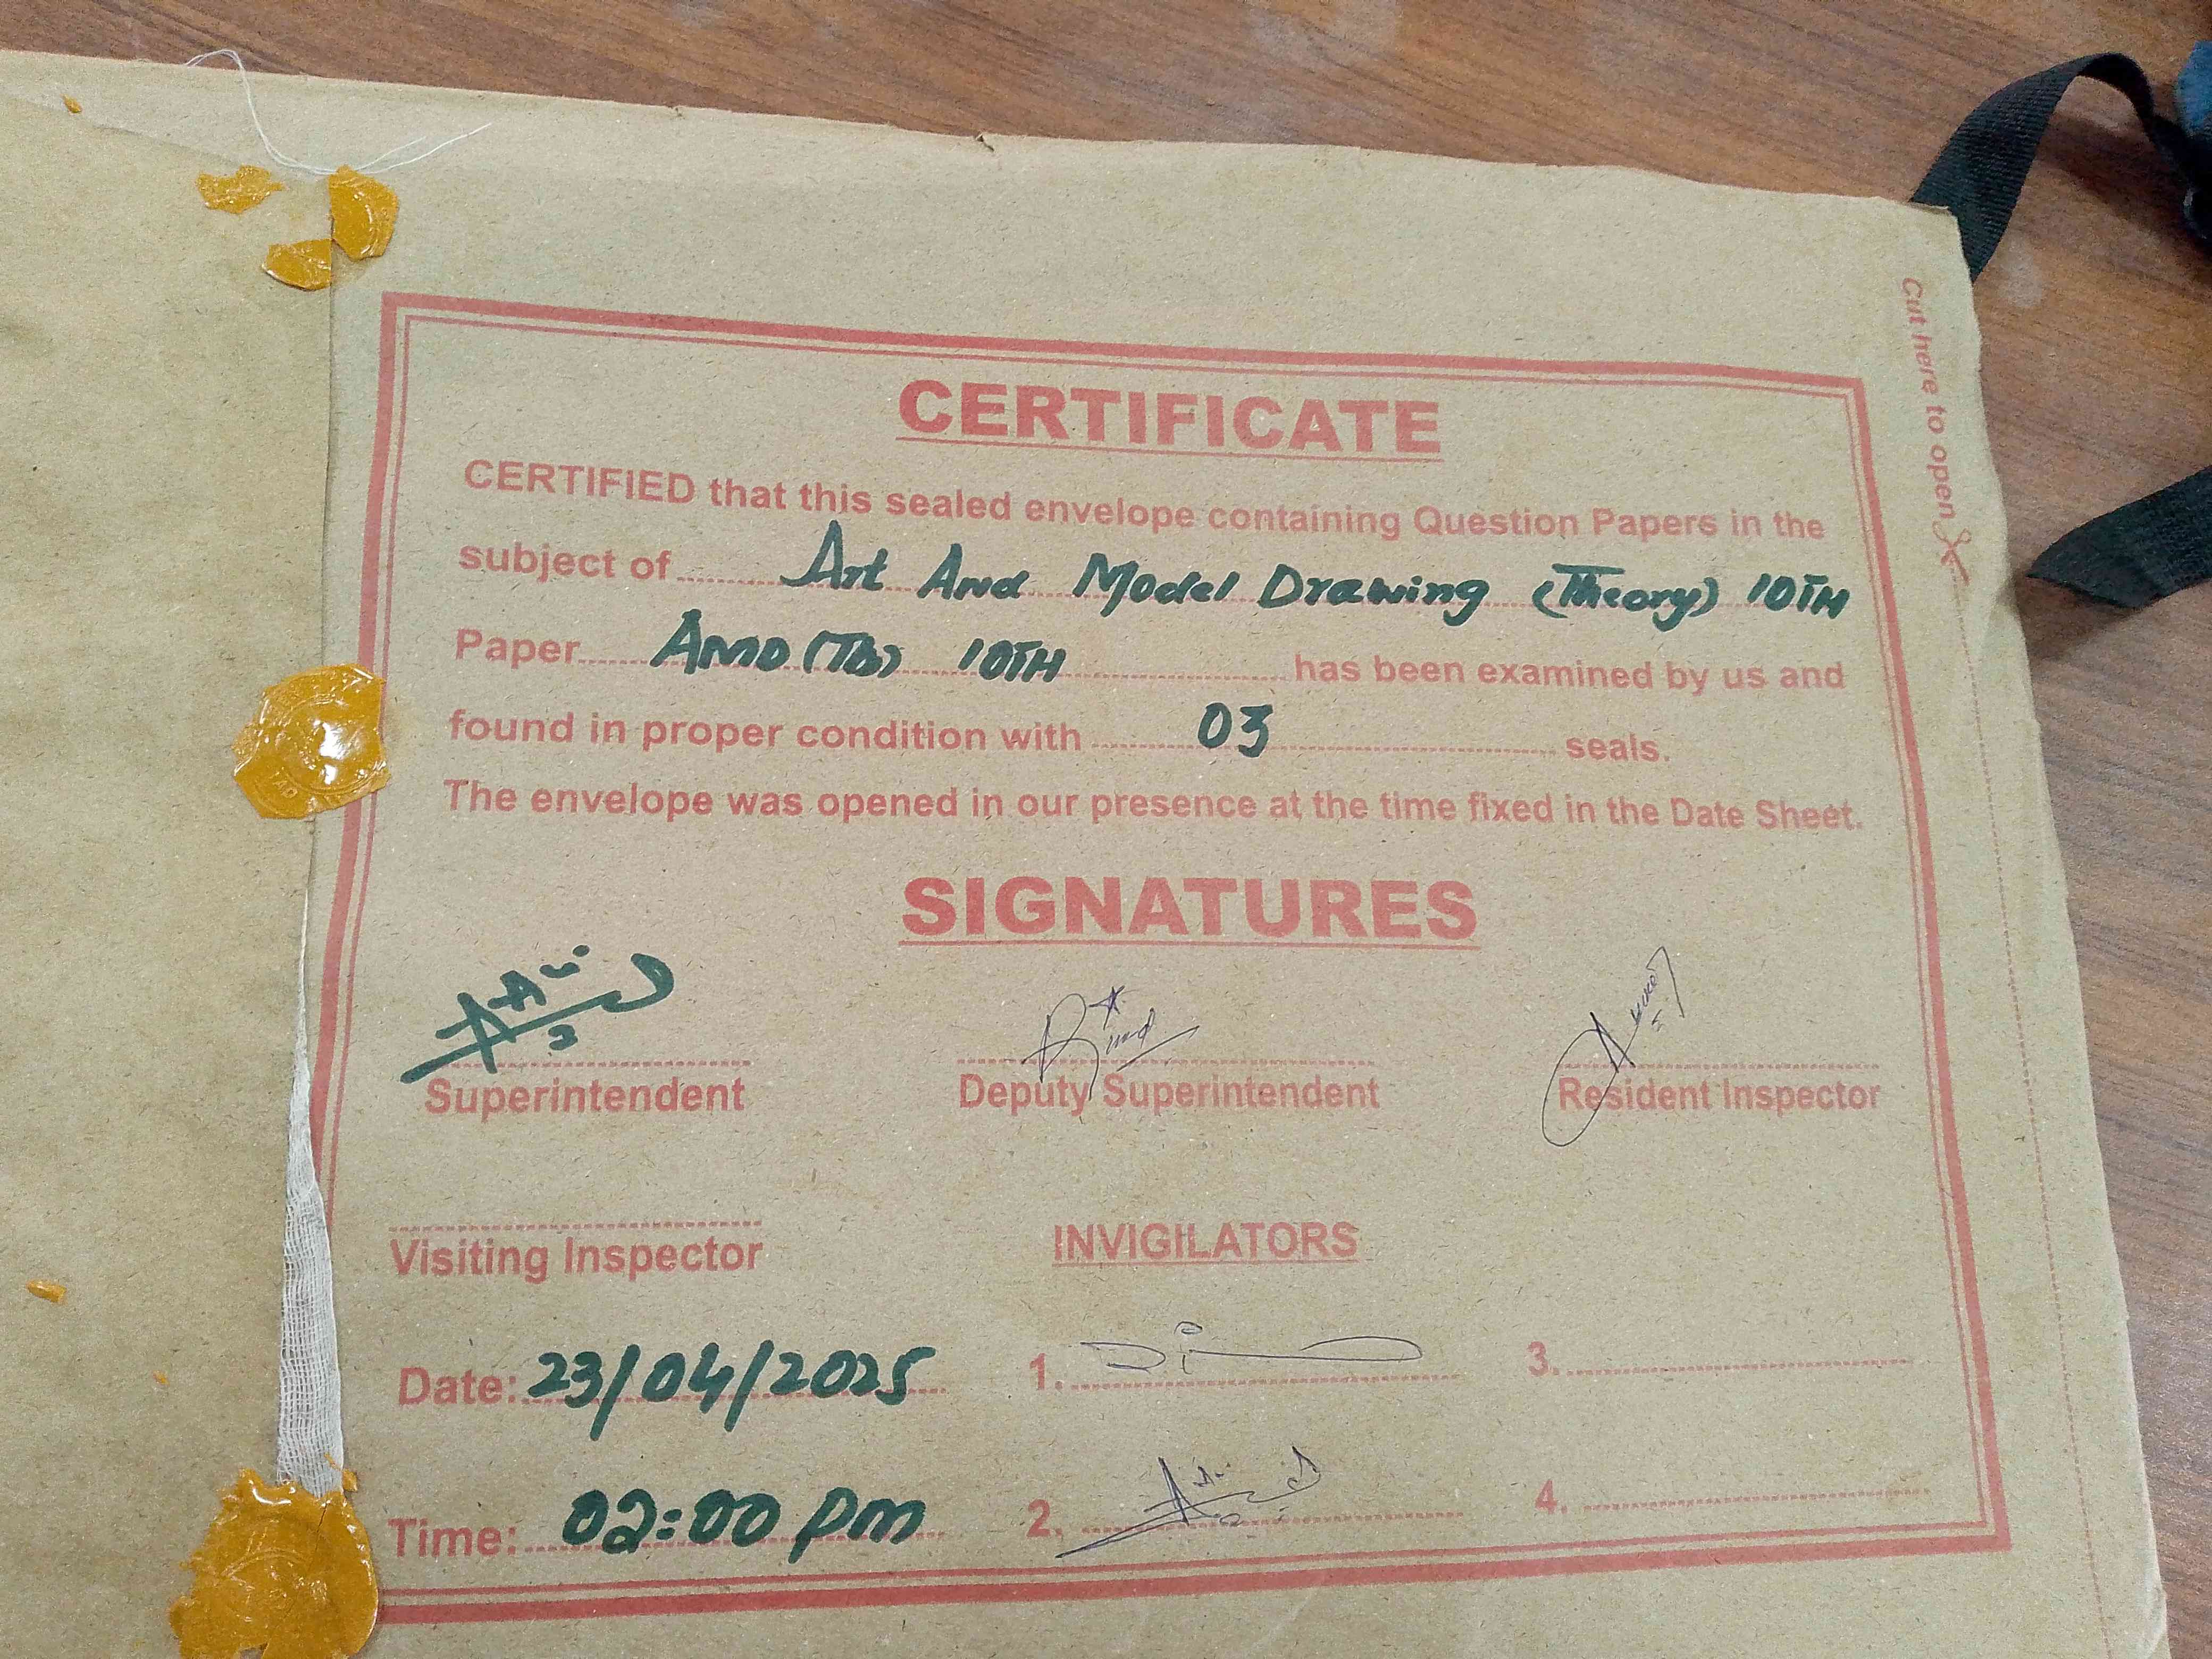 CERTIFICATE
CERTIFIED that this sealed envelope containing Question Papers in the
subject of Art And Model Drawing (Theory) 10TH
Paper AMD 10TH has been examined by us and
found in proper condition with 03 seals.
The envelope was opened in our presence at the time fixed in the Date Sheet.
SIGNATURES
Superintendent Deputy Superintendent Resident Inspector
Visiting Inspector INVIGILATORS
Date: 23/04/2025 1. 3.
Time: 02:00 pm 2. 4.
Cut here to open